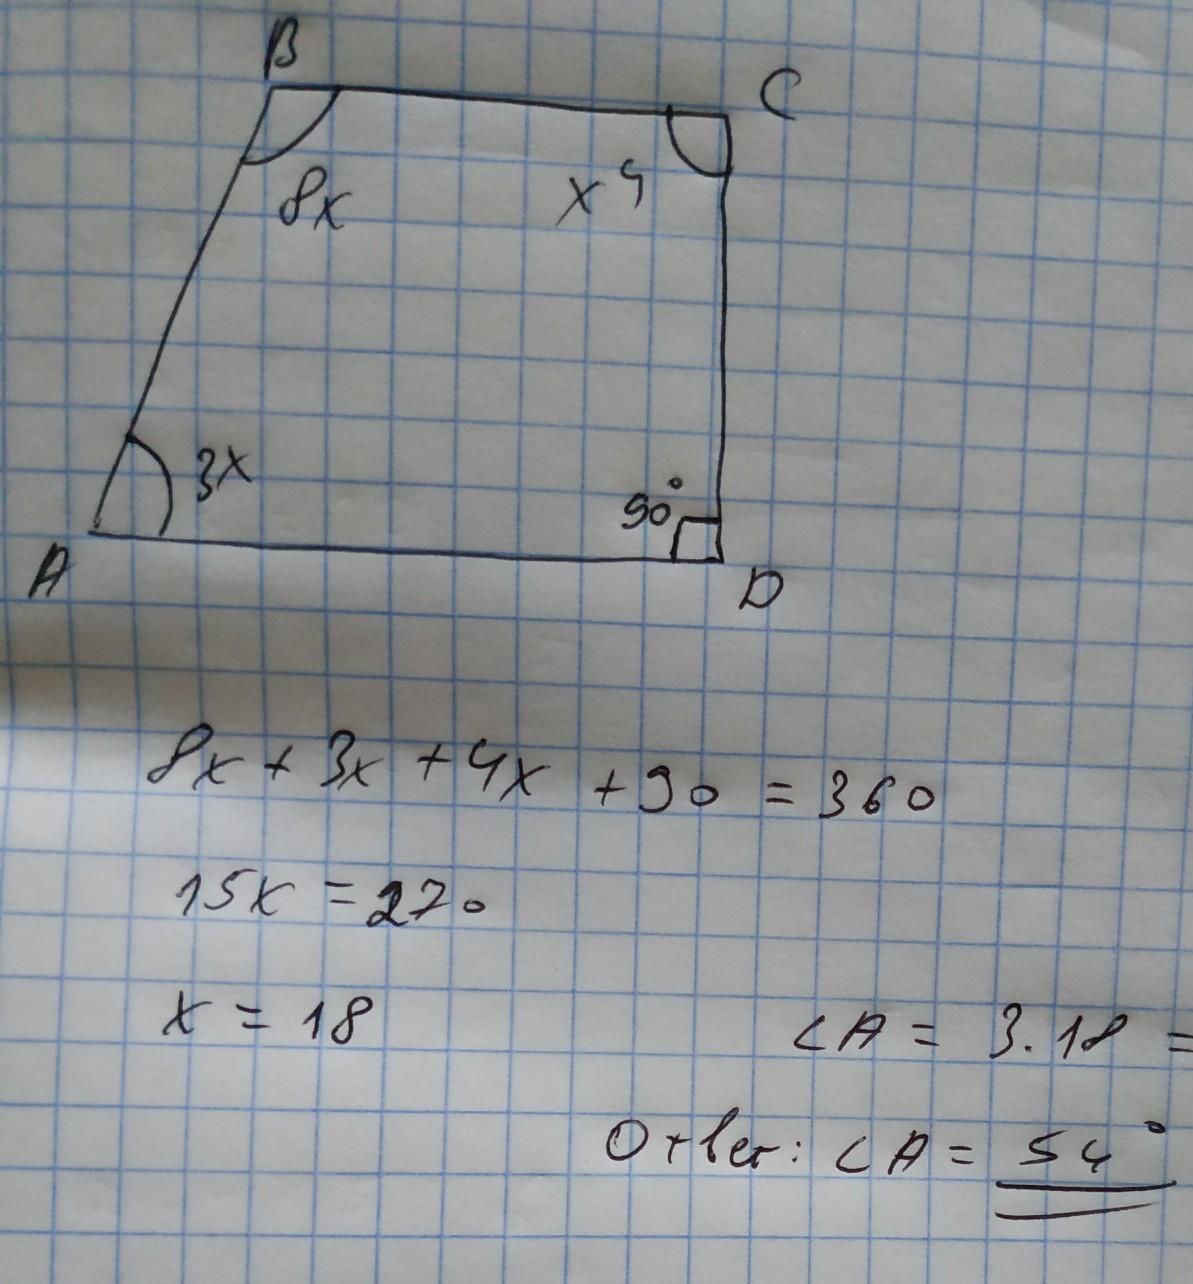 B
C
8x
x 4
3x
90°
A
D
8x + 3x + 4x + 90 = 360
15x = 270
x = 18
∠A = 3.18 =
Ответ: ∠A = 54°